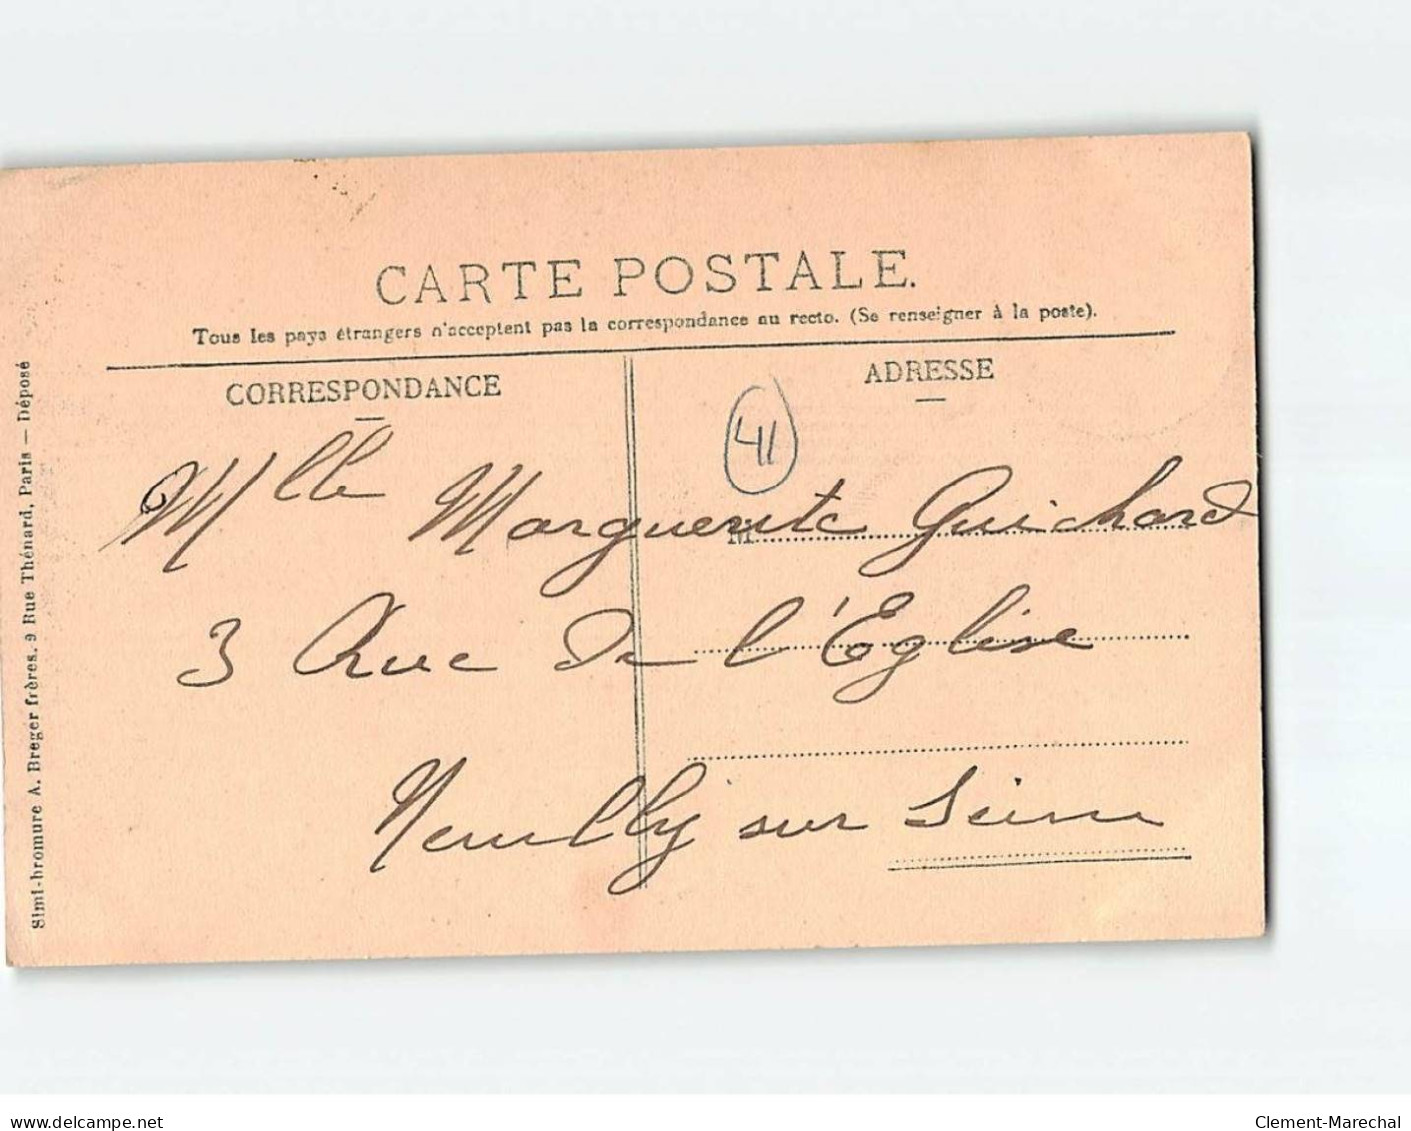 CARTE POSTALE.
Tous les pays étrangers n'acceptent pas la correspondance au recto. (Se renseigner à la poste).
CORRESPONDANCE
ADRESSE
41
Mlle Marguerite Guichard
M
3 Rue de l'Eglise
Neuilly sur Seine
Simi-bromure A. Breger frères. 9 Rue Thénard, Paris — Déposé
www.delcampe.net
Clement-Marechal